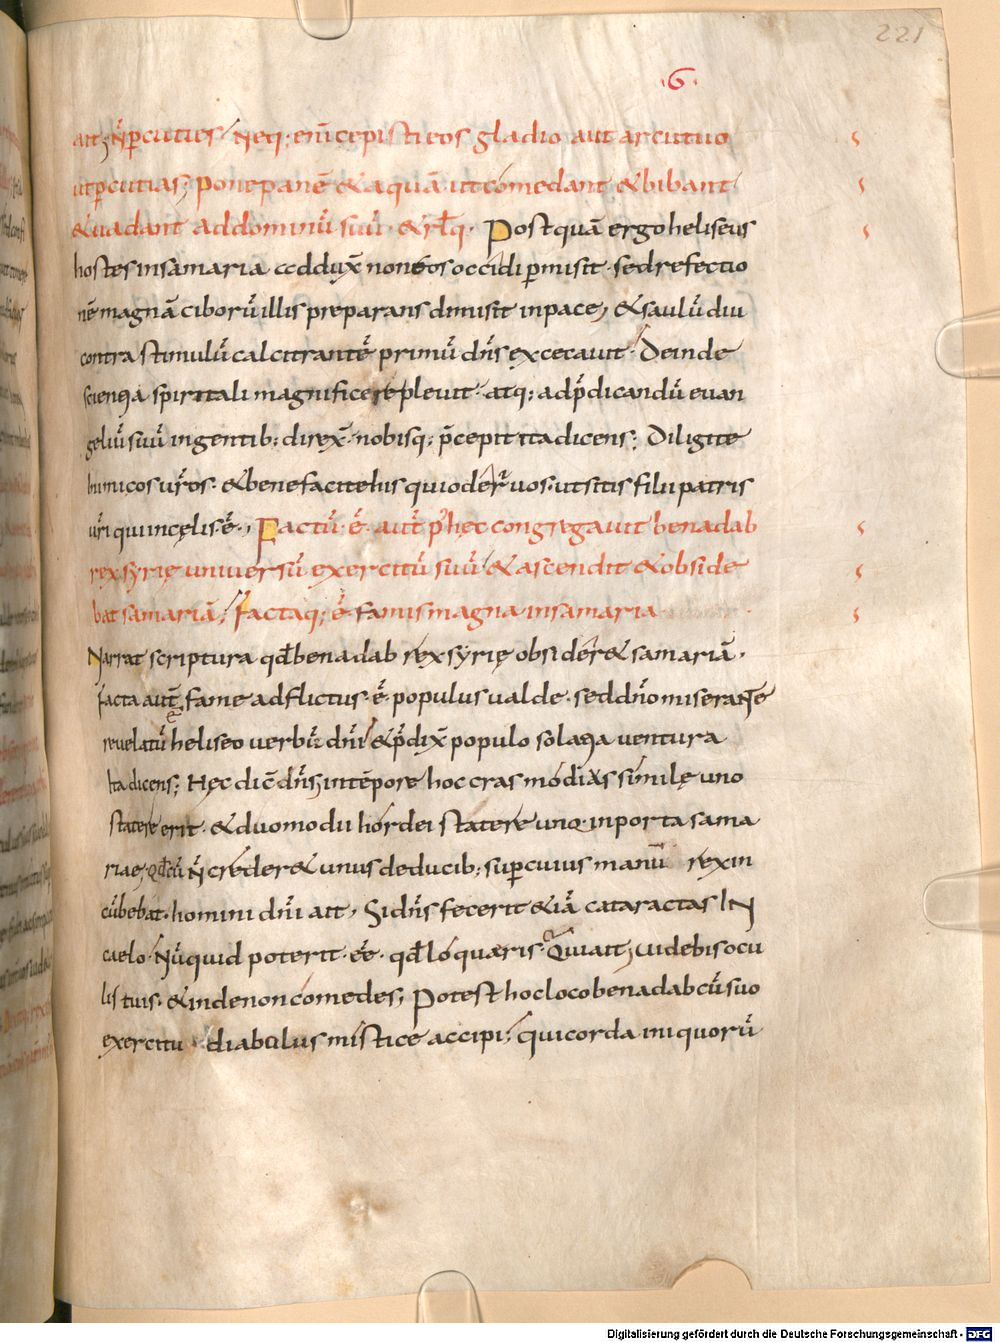 221
·6·
ait; N̄ percuties. Neq; enī cepisti eos gladio aut arcu tuo
ut percutias; Pone panē & aquā ut comedant & bibant
& uadant ad dominū suū. & rłq. Postquā ergo heliseus
hostes in samaria adduxͭ non eos occidi pmisit. sed refectio
nē magnā ciborū illis preparans dimisit in pace; & saulū diu
contra stimulū calcitrantē primū dn̄s excecauit. Deinde
scientia spiritali magnifice repleuit. atq; ad p̄dicandū euan
geliū suū in gentib; direxͭ. nobisq; p̄cepit ita dicens; Diligite
inimicos ur̄os. & benefacite his qui oder̄ uos. ut sitis filii patris
ur̄i qui in cęlis. ē. Factū. ē. aut̄ p' hęc congregauit benadab
rex syrię uniuersū exercitū suū. & ascendit & obside
bat samariā; Factaq; ē famis magna in samaria.
Narrat scriptura qđ benadab rex syrię obsider& samariā.
facta aut̄ fame adflictus. ē. populus ualde. sed dn̄o miserante
reuelatū heliseo uerbū dn̄i & p̄dixͭ populo solatia uentura
ita dicens; Hęc dic̄ dn̄s; in tēpore hoc cras modias similę uno
statere erit. & duo modii hordei statere uno. in porta sama
riae; Qđ cū n̄ creder& unus de ducib; sup cuius manū rex in
cūbebat. homini dn̄i ait. Si dn̄s fecerit &iā cataractas IN
caelo. Nūquid poterit. eē. qđ loquaris. Qui ait; uidebis ocu
lis tuis. & inde non comedes; Potest hoc loco benadab cū suo
exercitu diabulus mistice accipi; qui corda iniquorū
Digitalisierung gefördert durch die Deutsche Forschungsgemeinschaft - DFG